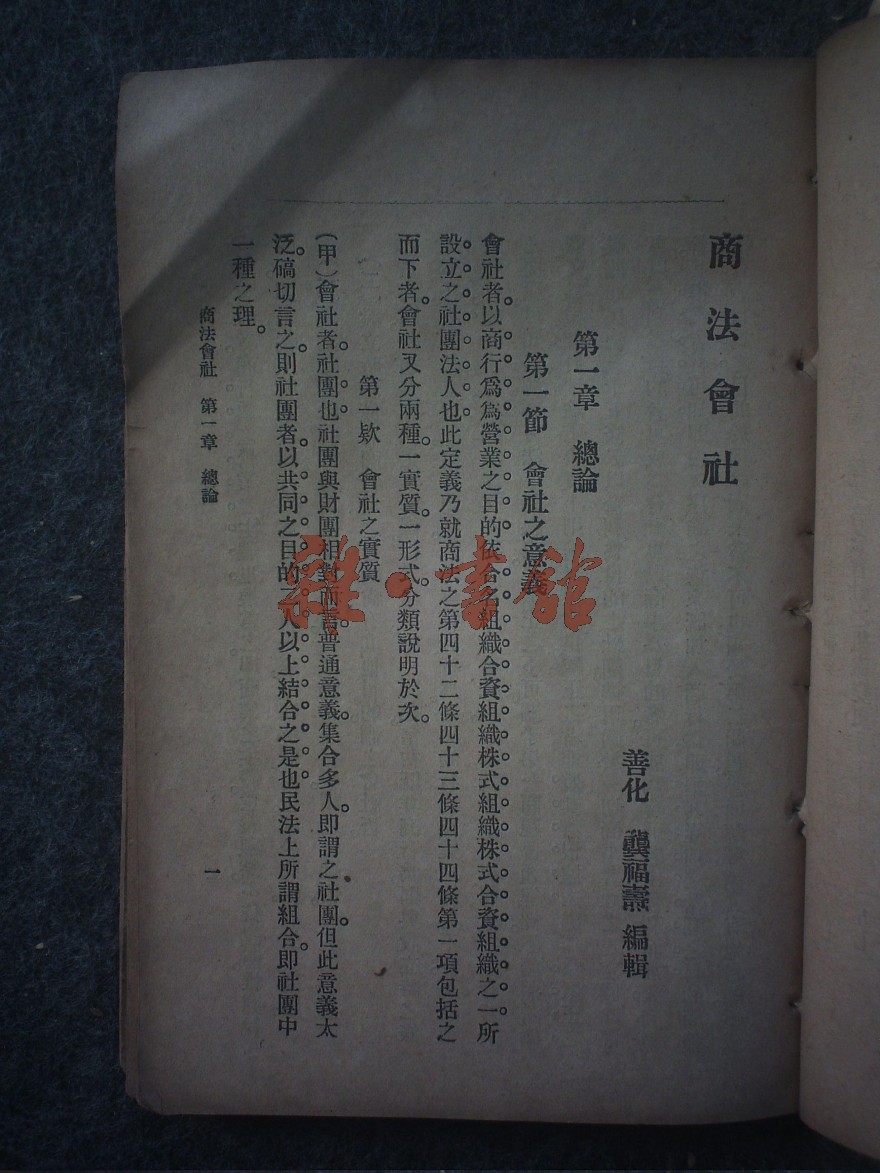 商法會社
善化 龔福燾 編輯
第一章 總論
第一節 會社之意義
會社者。以商行爲爲營業之目的依合名組織合資組織株式組織株式合資組織之一所
設立之社團法人也此定義乃就商法之第四十二條四十三條四十四條第一項包括之
而下者。會社又分兩種。一實質。一形式。分類說明於次。
第一欵 會社之實質
(甲)會社者。社團也。社團與財團相對而言。普通意義。集合多人。即謂之社團。但此意義太
泛。碻切言之。則社團者。以共同之目的。二人以上結合之是也。民法上所謂組合。即社團中
一種之理。
商法會社 第一章 總論
一
雜·書館